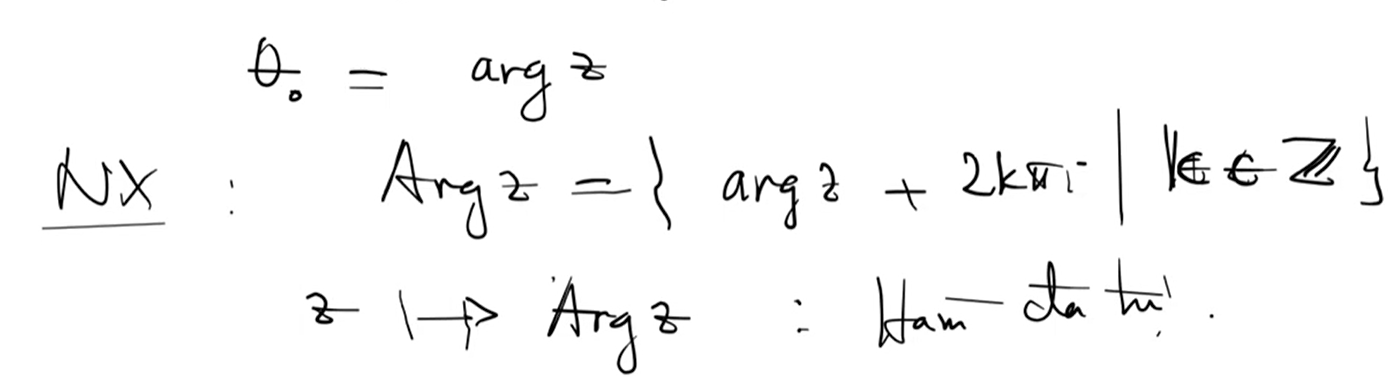 θ₀ = arg z
NX : Arg z = { arg z + 2kπi | k ∈ Z }
z ↦ Arg z : Ham đa trị.